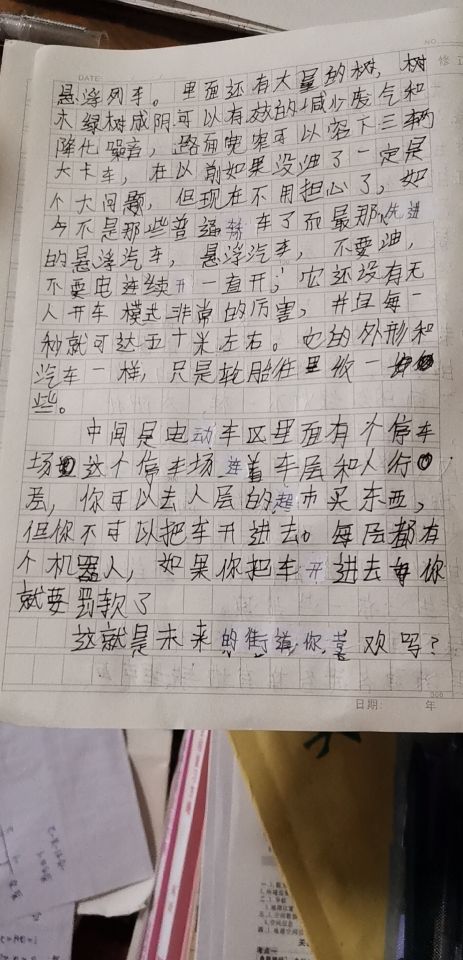 NO.
DATE:
修正
悬浮列车。里面还有大量的树，树
木绿树成阴可以有效的减少废气和
降化噪音，路面宽窄可以容下三辆
大卡车，在以前如果没油了一定是
个大问题，但现在不用担心了，如
今不是那些普通轿车了而最那先进
的悬浮汽车，悬浮汽车，不要油，
不要电连续开一直开；它还没有无
人开车模式非常的厉害，并且每一
秒就可达五十米左右。它的外形和
汽车一样，只是轮胎往里收一
些。
中间是电动车区里面有个停车
场这个停车场连着车层和人行
层，你可以去人层的超市买东西，
但你不可以把车开进去。每层都有
个机器人，如果你把车开进去你
就要罚款了
这就是未来的街道你喜欢吗？
300
日期： 年